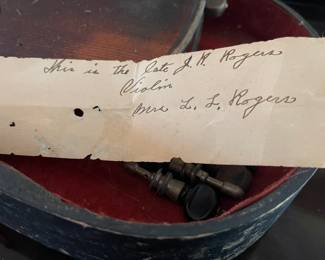 This is the late J. H. Rogers
Violin
Mrs L. L. Rogers